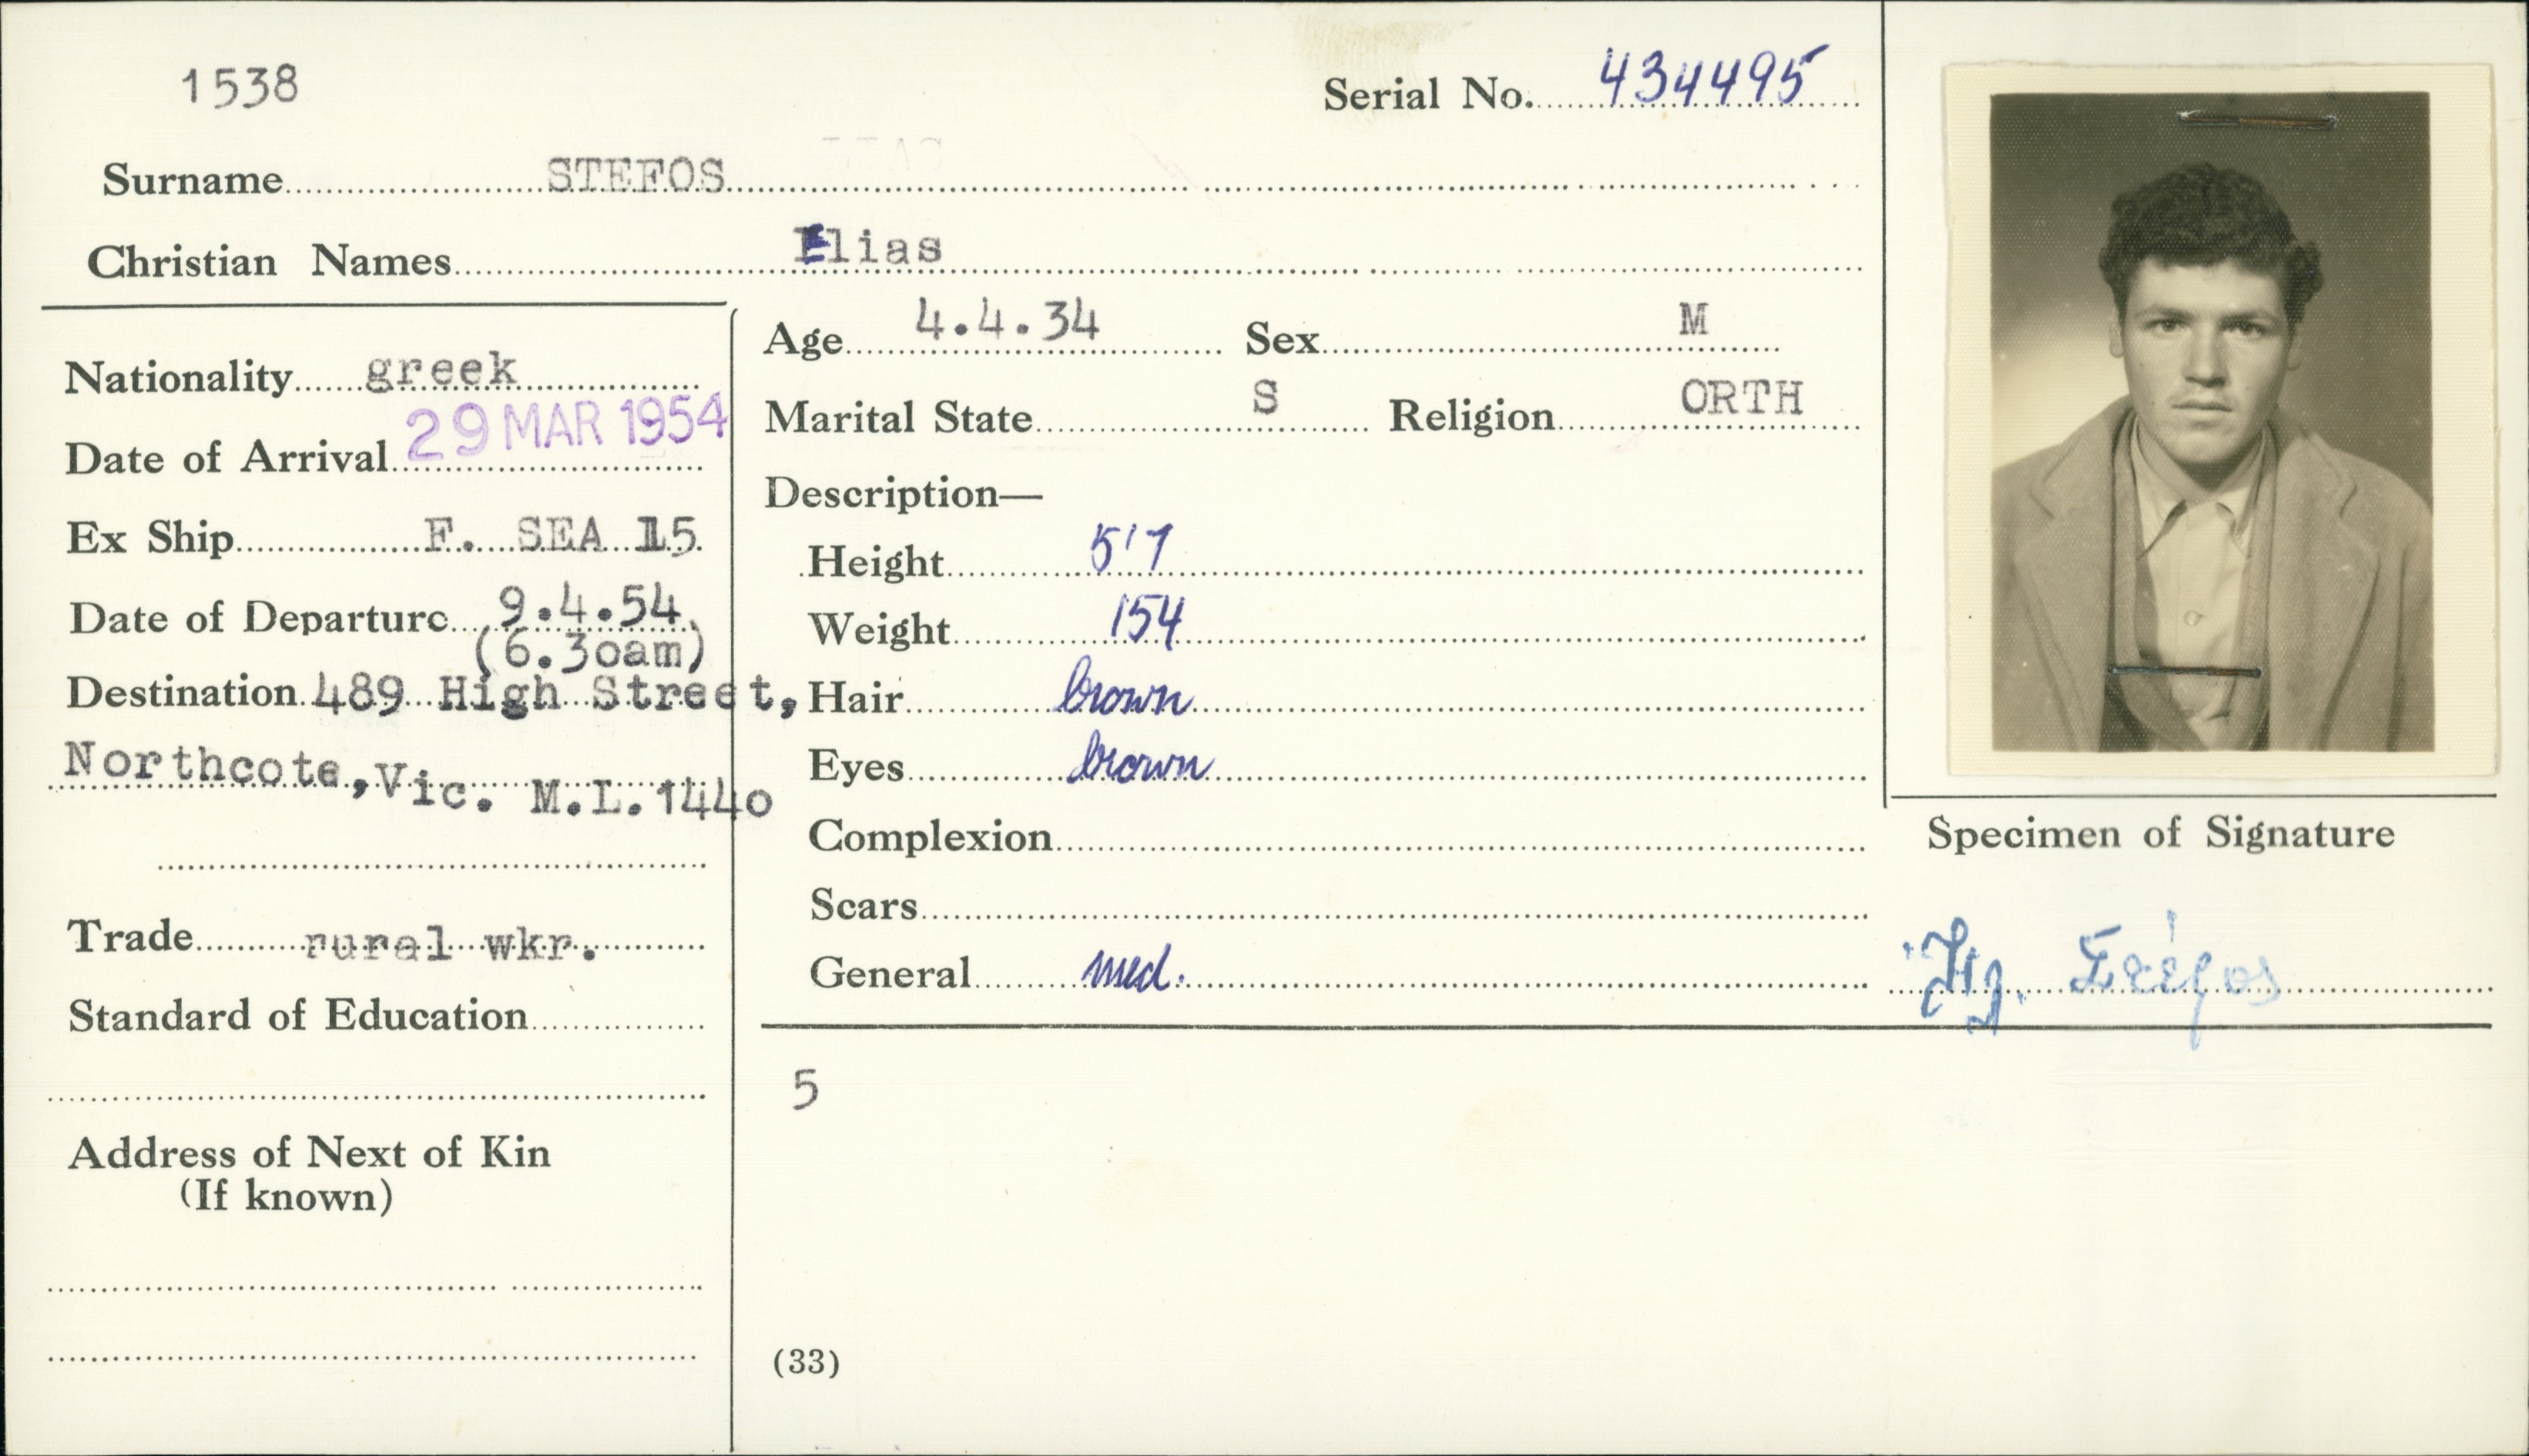 1538
Serial No. 434495
Surname STEFOS
Christian Names Elias
Nationality greek
Date of Arrival 29 MAR 1954
Ex Ship F. SEA 15
Date of Departure 9.4.54
(6.30am)
Destination 489 High Street,
Northcote, Vic. M.L.1440
Trade rural wkr.
Standard of Education
Address of Next of Kin
(If known)
Age 4.4.34 Sex M
Marital State S Religion ORTH
Description—
Height 5'7
Weight 154
Hair brown
Eyes brown
Complexion
Scars
General med.
5
(33)
Specimen of Signature
Ἠλ. Στέφος